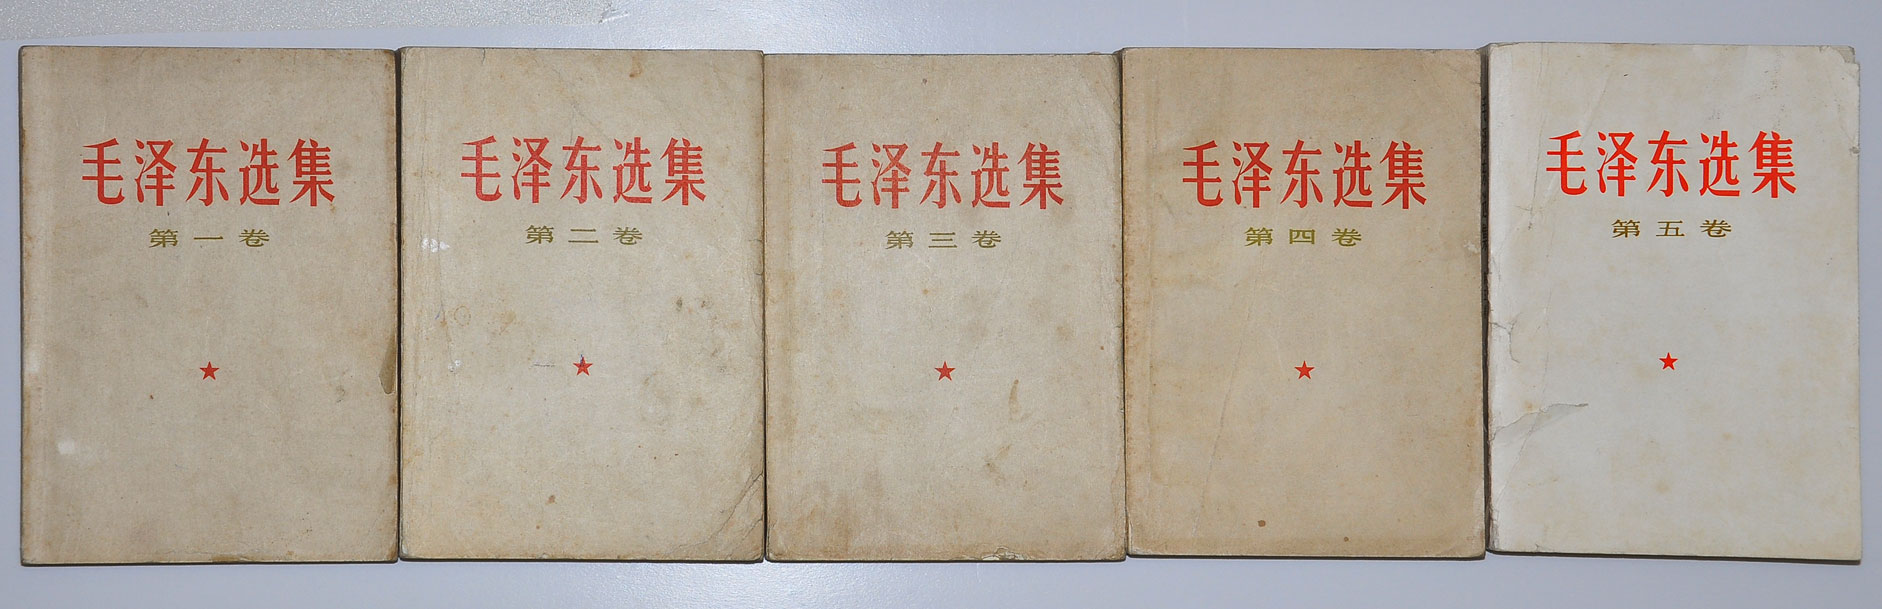 毛泽东选集
第一卷
毛泽东选集
第二卷
毛泽东选集
第三卷
毛泽东选集
第四卷
毛泽东选集
第五卷